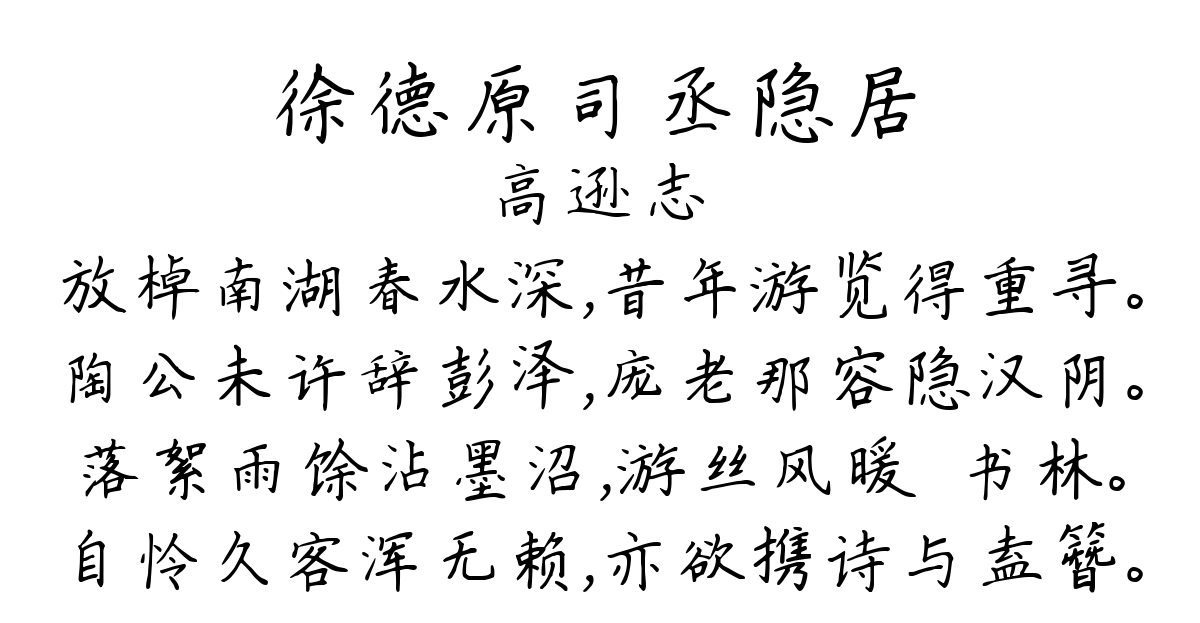 徐德原司丞隐居
高逊志
放棹南湖春水深,昔年游览得重寻。
陶公未许辞彭泽,庞老那容隐汉阴。
落絮雨馀沾墨沼,游丝风暖 书林。
自怜久客浑无赖,亦欲携诗与盍簪。